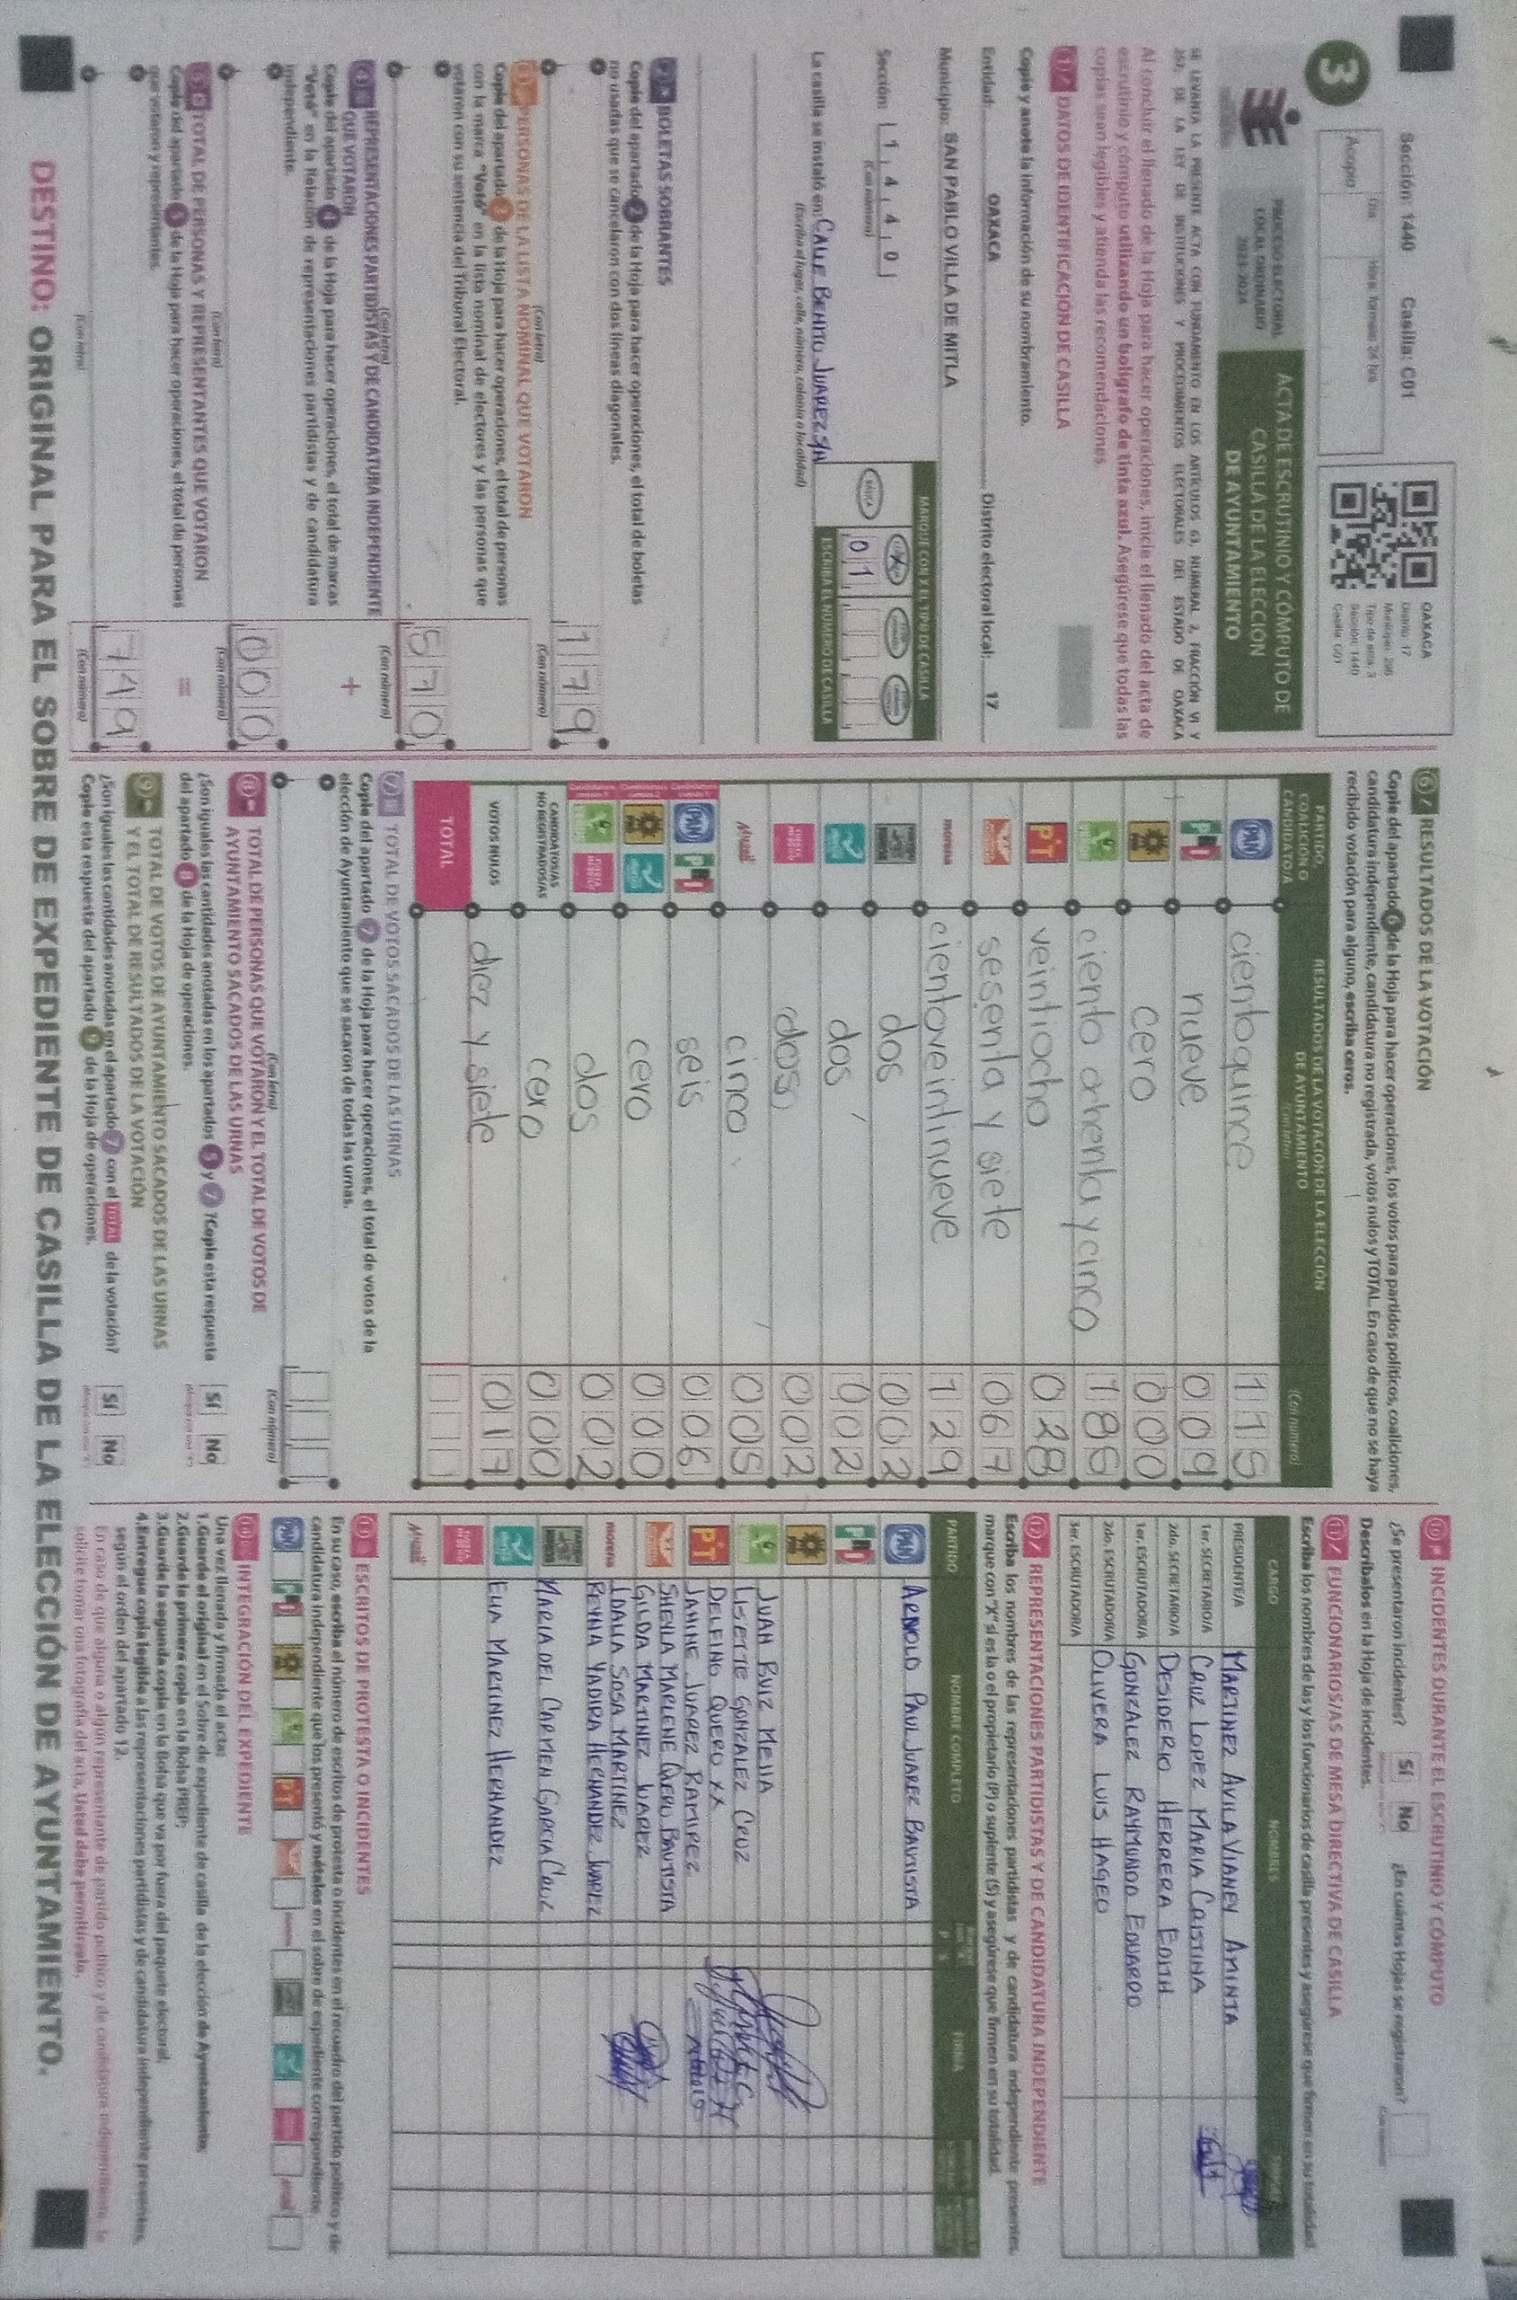 3
Sección: 1440 Casilla: C01
Día Hora: formato 24 hrs
Acopio
OAXACA
Distrito: 17
Tipo de acta: 3
Sección: 1440
Casilla: C01
PROCESO ELECTORAL
LOCAL ORDINARIO
2023-2024
ACTA DE ESCRUTINIO Y CÓMPUTO DE
CASILLA DE LA ELECCIÓN
DE AYUNTAMIENTO
SE LEVANTA LA PRESENTE ACTA CON FUNDAMENTO EN LOS ARTÍCULOS 63, NUMERAL 2, FRACCIÓN VI Y
DE LA LEY DE INSTITUCIONES Y PROCEDIMIENTOS ELECTORALES DEL ESTADO DE OAXACA
Al concluir el llenado de la Hoja para hacer operaciones, inicie el llenado del acta de
escrutinio y cómputo utilizando un bolígrafo de tinta azul. Asegúrese que todas las
copias sean legibles y atienda las recomendaciones.
1 DATOS DE IDENTIFICACIÓN DE CASILLA
Copie y anote la información de su nombramiento.
Entidad: OAXACA Distrito electoral local: 17
Municipio: SAN PABLO VILLA DE MITLA
Sección: 1 4 4 0
(Con número)
MARQUE CON X EL TIPO DE CASILLA
BÁSICA
0 1
ESCRIBA EL NÚMERO DE CASILLA
La casilla se instaló en: CALLE BENITO JUAREZ S/N
(Escriba el lugar, calle, número, colonia o localidad)
2 BOLETAS SOBRANTES
Copie del apartado 2 de la Hoja para hacer operaciones, el total de boletas
no usadas que se cancelaron con dos líneas diagonales.
179
(Con letra) (Con número)
3 PERSONAS DE LA LISTA NOMINAL QUE VOTARON
Copie del apartado 3 de la Hoja para hacer operaciones, el total de personas
con la marca "Votó" en la lista nominal de electores y las personas que
votaron con su sentencia del Tribunal Electoral.
570
(Con letra) (Con número)
4 REPRESENTACIONES PARTIDISTAS Y DE CANDIDATURA INDEPENDIENTE
QUE VOTARON
+
Copie del apartado 4 de la Hoja para hacer operaciones, el total de marcas
"Votó" en la Relación de representaciones partidistas y de candidatura
independiente.
000
(Con letra) (Con número)
5 TOTAL DE PERSONAS Y REPRESENTANTES QUE VOTARON
=
Copie del apartado 5 de la Hoja para hacer operaciones, el total de personas
que votaron y representantes.
749
(Con letra) (Con número)
6 RESULTADOS DE LA VOTACIÓN
Copie del apartado 6 de la Hoja para hacer operaciones, los votos para partidos políticos, coaliciones,
candidatura independiente, candidatura no registrada, votos nulos y TOTAL. En caso de que no se haya
recibido votación para alguno, escriba ceros.
PARTIDO,
COALICIÓN O
CANDIDATO/A
RESULTADOS DE LA VOTACIÓN DE LA ELECCIÓN
DE AYUNTAMIENTO
(Con letra) (Con número)
PAN ciento quince 115
PRI nueve 009
PRD cero 000
VERDE ciento ochenta y cinco 186
PT veintiocho 028
sesenta y siete 067
morena cientoveintinueve 129
dos 002
dos 002
FUERZA MÉXICO dos 002
Mujer cinco 005
PAN PRI seis 006
PRD cero 000
dos 002
CANDIDATOS/AS
NO REGISTRADOS/AS cero 000
VOTOS NULOS diez y siete 017
TOTAL
7 TOTAL DE VOTOS SACADOS DE LAS URNAS
Copie del apartado 7 de la Hoja para hacer operaciones, el total de votos de la
elección de Ayuntamiento que se sacaron de todas las urnas.
(Con letra) (Con número)
8 TOTAL DE PERSONAS QUE VOTARON Y EL TOTAL DE VOTOS DE
AYUNTAMIENTO SACADOS DE LAS URNAS
¿Son iguales las cantidades anotadas en los apartados 5 y 7? Copie esta respuesta
del apartado 8 de la Hoja de operaciones.
Sí No
9 TOTAL DE VOTOS DE AYUNTAMIENTO SACADOS DE LAS URNAS
Y EL TOTAL DE RESULTADOS DE LA VOTACIÓN
¿Son iguales las cantidades anotadas en el apartado 7 con el TOTAL de la votación?
Copie esta respuesta del apartado 9 de la Hoja de operaciones.
Sí No
10 INCIDENTES DURANTE EL ESCRUTINIO Y CÓMPUTO
¿Se presentaron incidentes? Sí No ¿En cuántas Hojas se registraron?
Descríbalos en la Hoja de incidentes.
11 FUNCIONARIOS/AS DE MESA DIRECTIVA DE CASILLA
Escriba los nombres de las y los funcionarios de casilla presentes y asegúrese que firmen en su totalidad
CARGO NOMBRES FIRMAS
PRESIDENTE/A MARTINEZ AVILA VIANEY AMINTA
1er. SECRETARIO/A CRUZ LOPEZ MARIA CRISTINA
2do. SECRETARIO/A DESIDERIO HERRERA EDITH
1er. ESCRUTADOR/A GONZALEZ RAYMUNDO EDUARDO
2do. ESCRUTADOR/A OLIVERA LUIS HAGEO
3er. ESCRUTADOR/A
12 REPRESENTACIONES PARTIDISTAS Y DE CANDIDATURA INDEPENDIENTE
Escriba los nombres de las representaciones partidistas y de candidatura independiente presentes,
marque con "X" si es la o el propietario (P) o suplente (S) y asegúrese que firmen en su totalidad.
PARTIDO NOMBRE COMPLETO P S FIRMA
PAN ARNOLD PAUL JUAREZ BAUTISTA
PRI
PRD
VERDE JUAN RUIZ MEJIA
LISETTE GONZALEZ CRUZ
PT DELFINO QUERO XX
JANINE JUAREZ RAMIREZ
SHEYLA MARLENE QUERO BAUTISTA
GILDA MARTINEZ JUAREZ
morena IDALIA SOSA MARTINEZ
REYNA YADIRA HERNANDEZ JUAREZ
MARIA DEL CARMEN GARCIA CRUZ
ELIA MARTINEZ HERNANDEZ
FUERZA MÉXICO
Mujer
13 ESCRITOS DE PROTESTA O INCIDENTES
En su caso, escriba el número de escritos de protesta o incidentes en el recuadro del partido político y de
candidatura independiente que los presentó y métalos en el sobre de expediente correspondiente.
PAN PRI PRD VERDE PT
14 INTEGRACIÓN DEL EXPEDIENTE
Una vez llenada y firmada el acta:
1.Guarde el original en el Sobre de expediente de casilla de la elección de Ayuntamiento;
2.Guarde la primera copia en la Bolsa PREP;
3.Guarde la segunda copia en la Bolsa que va por fuera del paquete electoral;
4.Entregue copia legible a las representaciones partidistas y de candidatura independiente presentes,
según el orden del apartado 12.
En caso de que alguna o algún representante de partido político y de candidatura independiente, le
solicite tomar una fotografía del acta, Usted debe permitírselo.
DESTINO: ORIGINAL PARA EL SOBRE DE EXPEDIENTE DE CASILLA DE LA ELECCIÓN DE AYUNTAMIENTO.